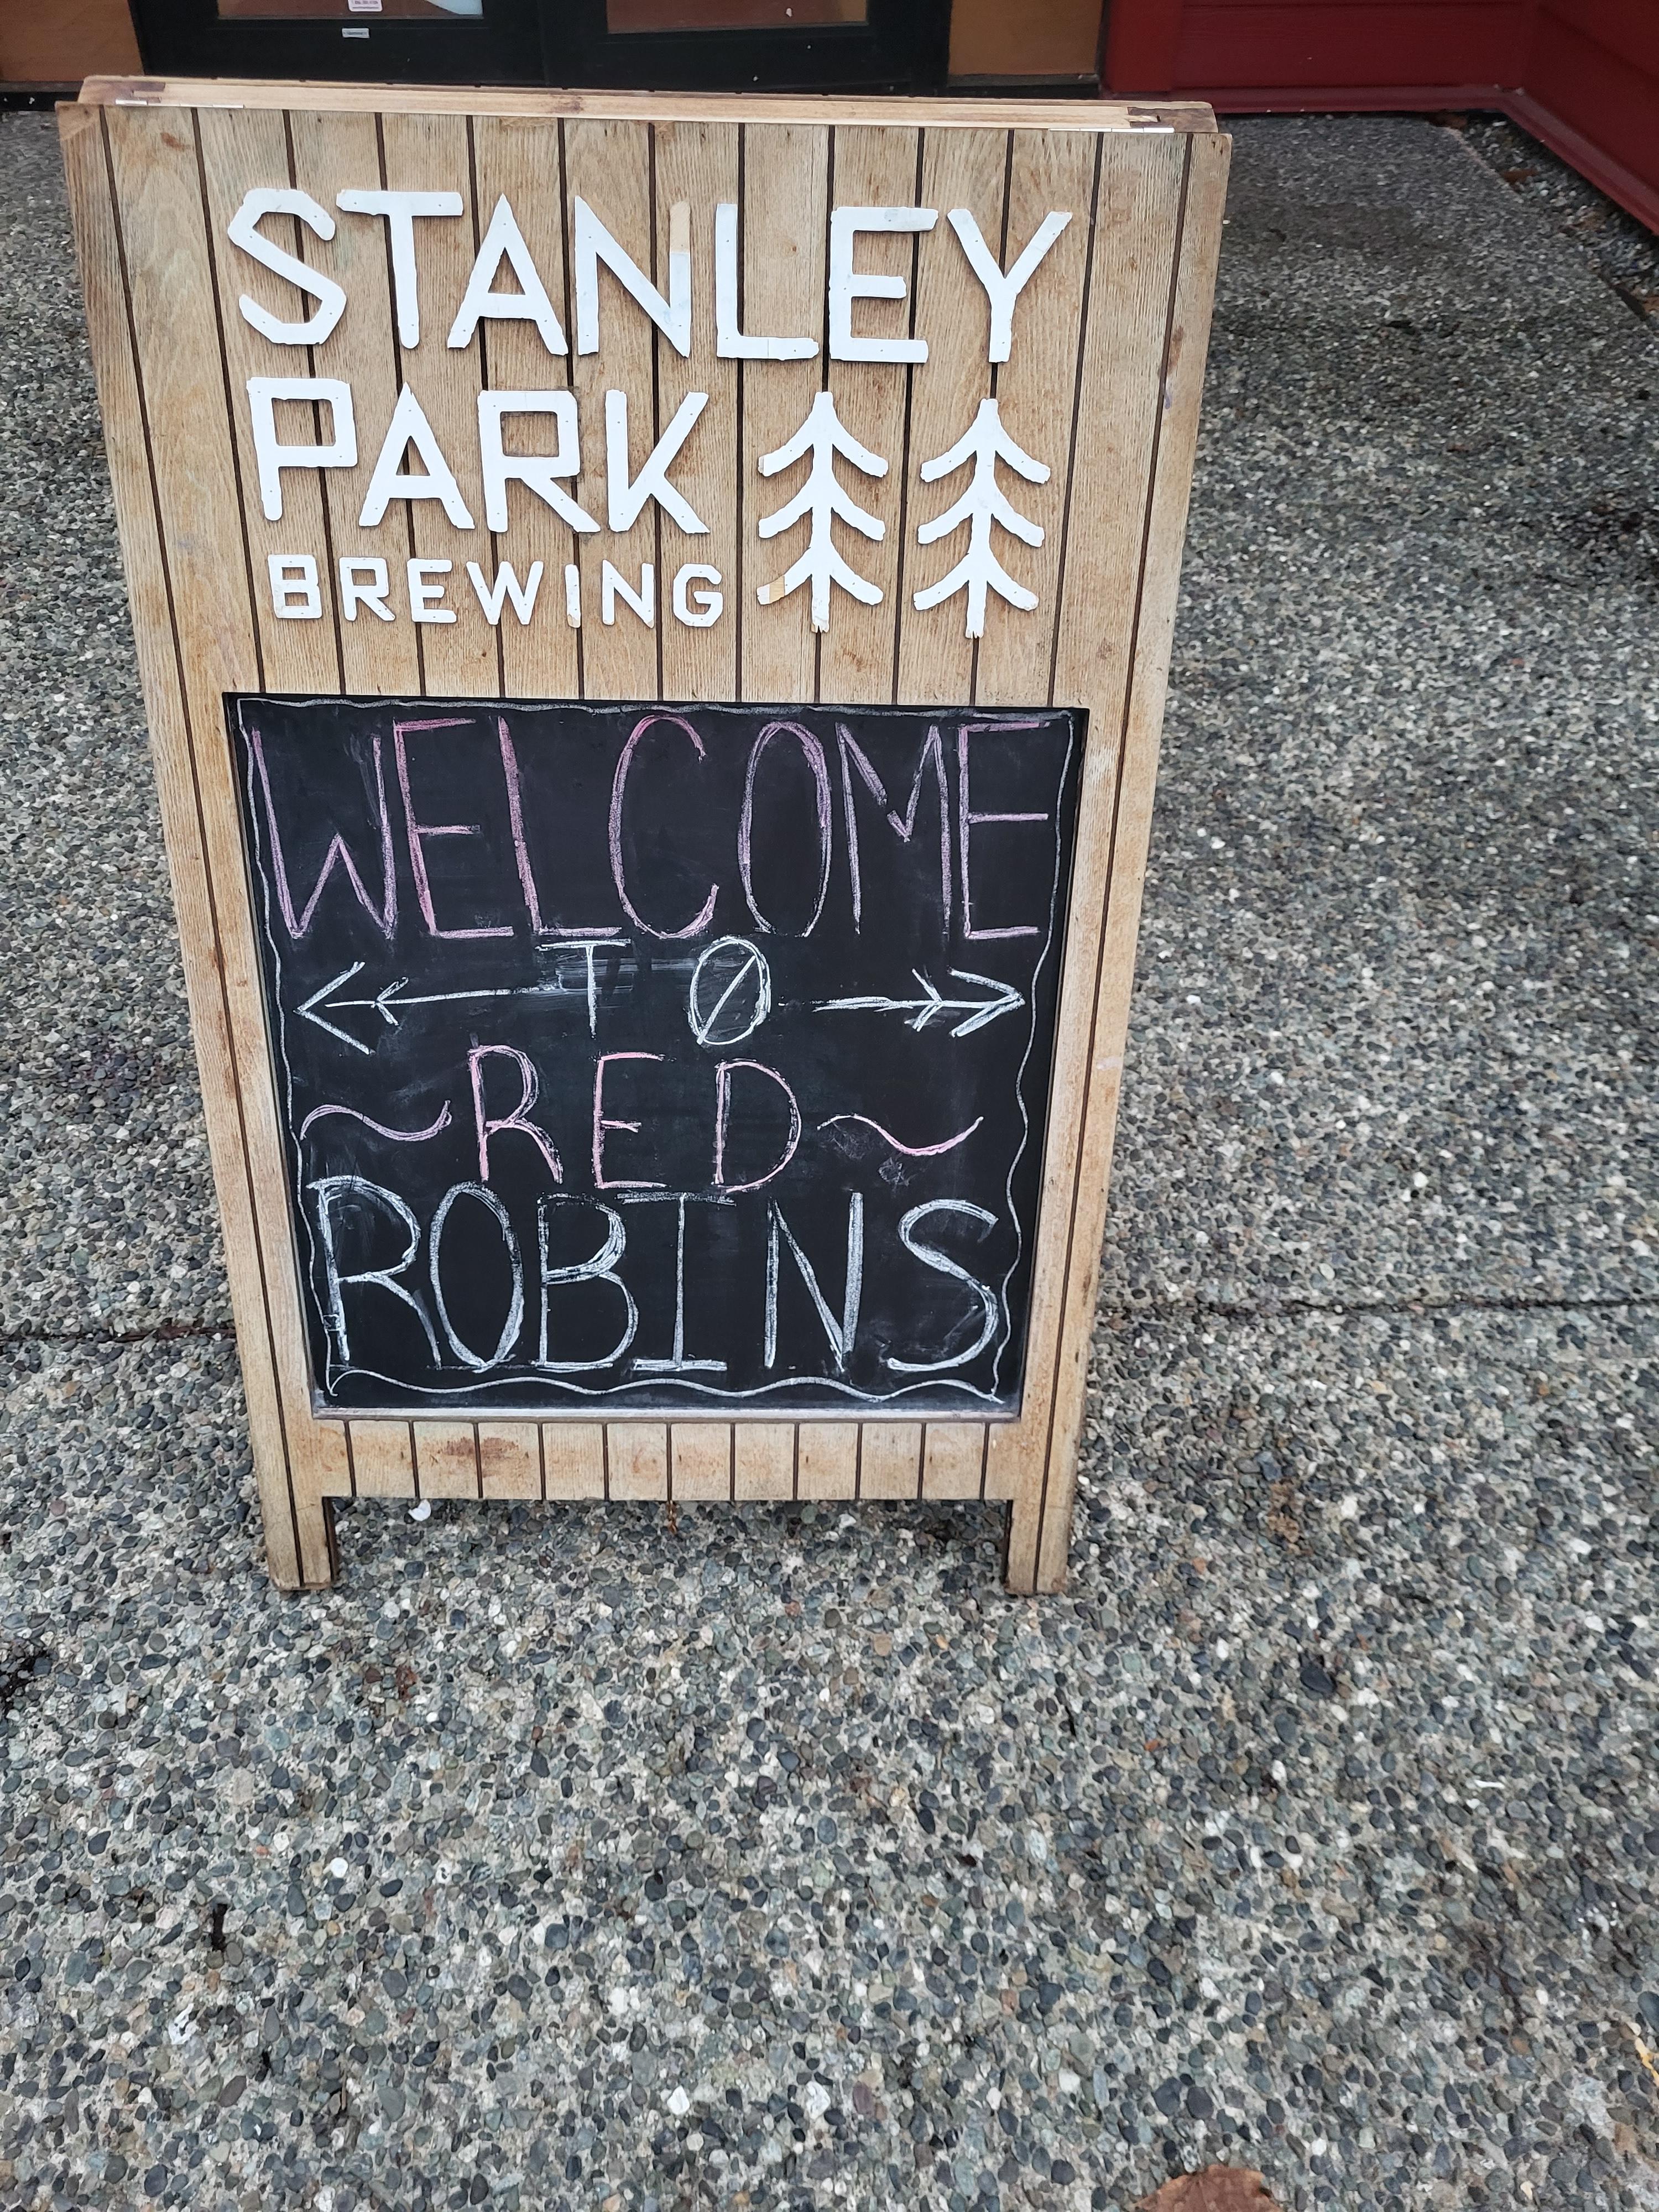 STANLEY
PARK
BREWING
WELCOME
TØ
~RED~
ROBINS